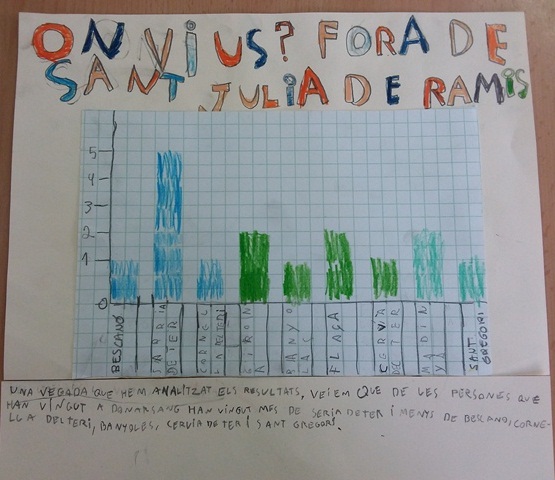 ON VIUS? FORA DE
SANT JULIA DE RAMIS
5
4
3
2
1
0
BESCANÓ
SARRIA DE TER
CORNELLA DEL TERI
GIRONA
BANYOLAS
FLAÇA
CERVIA DE TER
MADINYÀ
SANT GREGORI
UNA VEGADA QUE HEM ANALITZAT ELS RESULTATS, VEIEM QUE DE LES PERSONES QUE
HAN VINGUT A DONAR SANG HAN VINGUT MÉS DE SERIA DE TER I MENYS DE BESCANO, CORNE-
LLA DEL TERI, BANYOLES, CERVIA DE TER I SANT GREGORI.